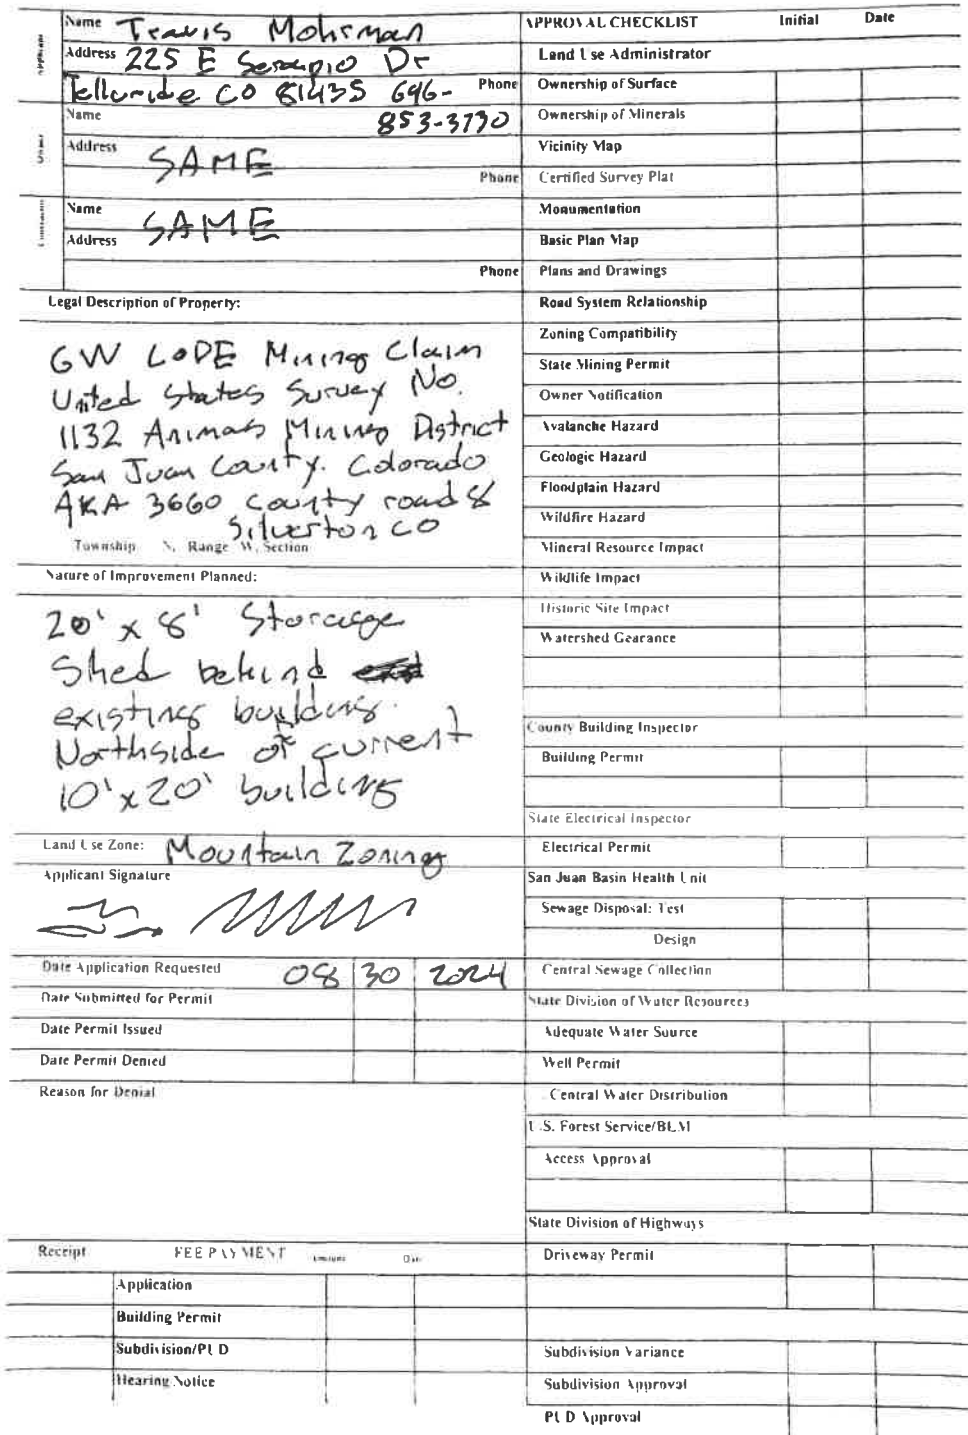 Applicant
Name Travis Mohrman
Address 225 E Serapio Dr
Telluride CO 81435 646-
Phone
853-3730
Owner
Name
Address SAME
Phone
Name SAME
Address
Phone
Legal Description of Property:
GW LODE Mining Claim
United States Survey No.
1132 Animas Mining District
San Juan County. Colorado
AKA 3660 county road 8
Silverton CO
Township N, Range W, Section
Nature of Improvement Planned:
20' x 8' Storage
Shed behind
existing building.
Northside of current
10'x20' building
Land Use Zone: Mountain Zoning
Applicant Signature
Date Application Requested 08 30 2024
Date Submitted for Permit
Date Permit Issued
Date Permit Denied
Reason for Denial
Receipt FEE PAYMENT Amount Date
Application
Building Permit
Subdivision/PUD
Hearing Notice
APPROVAL CHECKLIST Initial Date
Land Use Administrator
Ownership of Surface
Ownership of Minerals
Vicinity Map
Certified Survey Plat
Monumentation
Basic Plan Map
Plans and Drawings
Road System Relationship
Zoning Compatibility
State Mining Permit
Owner Notification
Avalanche Hazard
Geologic Hazard
Floodplain Hazard
Wildfire Hazard
Mineral Resource Impact
Wildlife Impact
Historic Site Impact
Watershed Gearance
County Building Inspector
Building Permit
State Electrical Inspector
Electrical Permit
San Juan Basin Health Unit
Sewage Disposal: Test
Design
Central Sewage Collection
State Division of Water Resources
Adequate Water Source
Well Permit
Central Water Distribution
U.S. Forest Service/BLM
Access Approval
State Division of Highways
Driveway Permit
Subdivision Variance
Subdivision Approval
PUD Approval